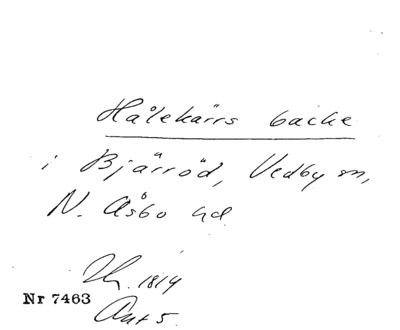 Hålekärrs backe
i Bjärröd, Vedby sn,
N. Åsbo hd
1814
Nr 7463